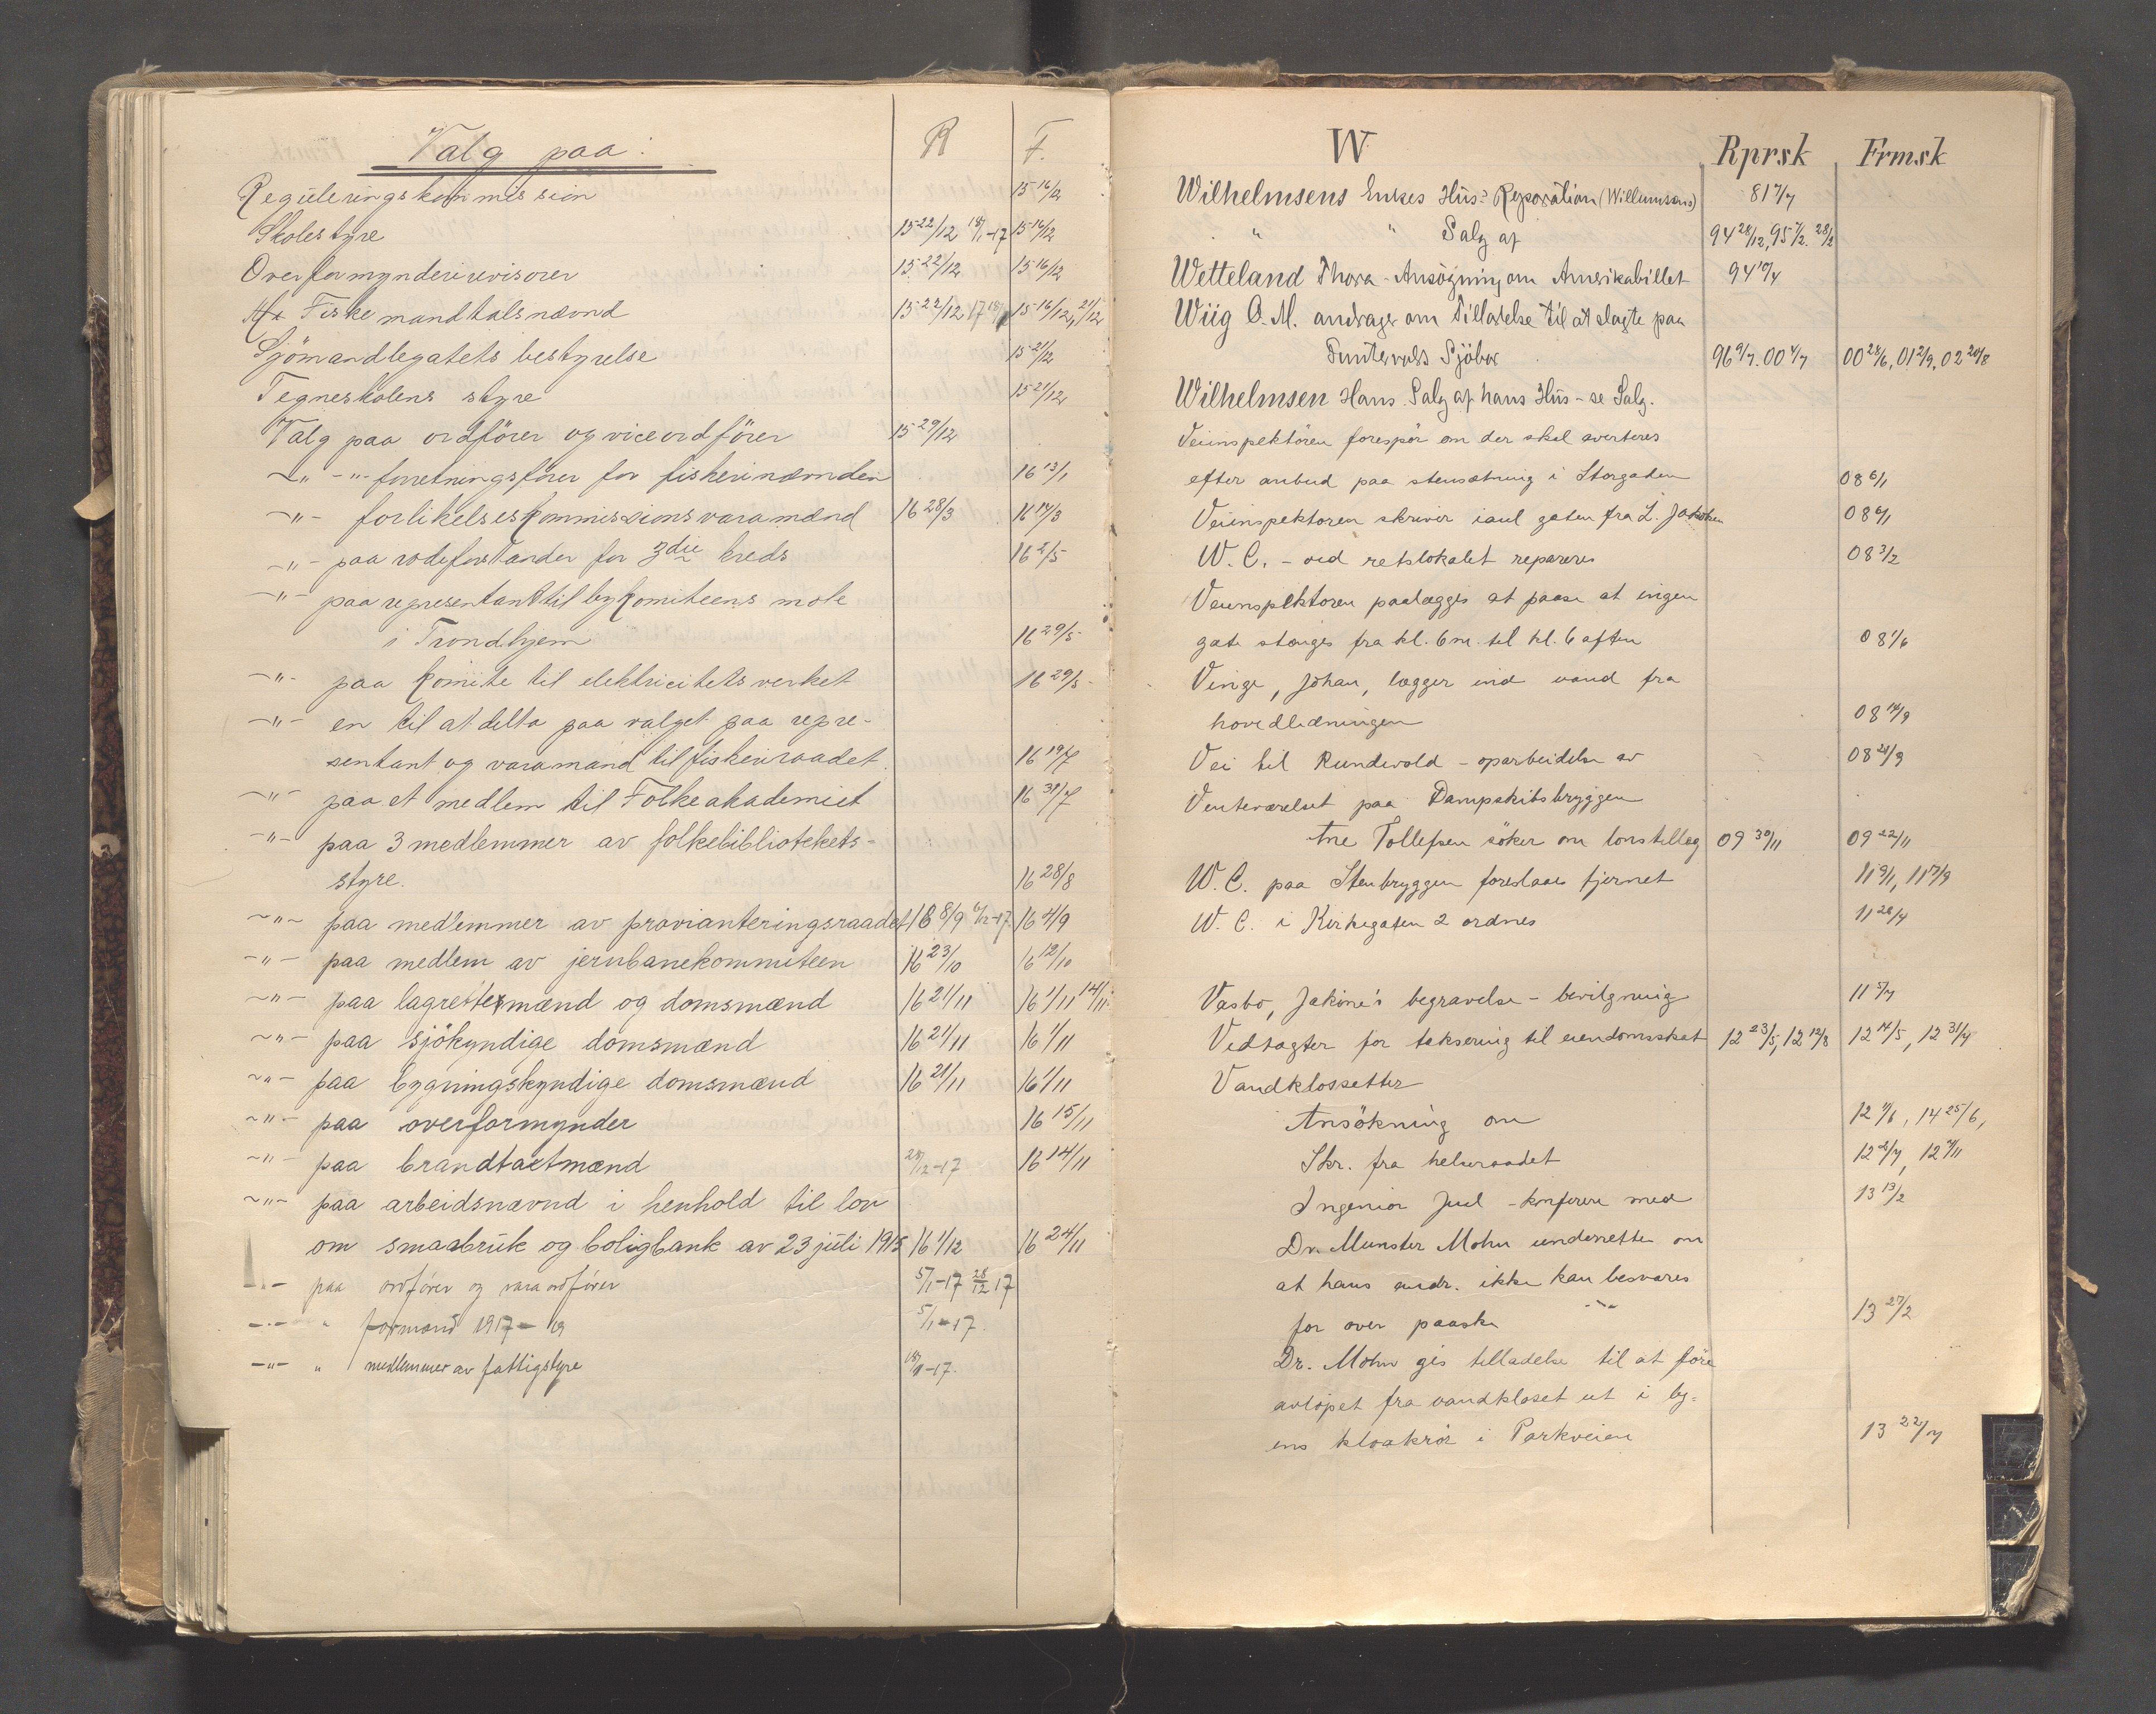 Valg paa: R F.
Reguleringskommission 15 16/12
Skolestyre 15 22/12 18/1-17 15 16/12
Overformynderirevisorer 15 22/12 15 16/12
Fiskemandtalsnævnd 15 22/12 17 15 16/12, 21/12
Sjömandlegatets bestyrelse 15 21/12
Tegneskolens styre 15 21/12
Valg paa ordförer og viceordförer 15 29/12
-"- -"- forretningsförer for fiskerinævnden 16 13/1
-"- forlikelseskommissionsvaramænd 16 28/3 16 14/3
-"- paa rodeforstander for 3die kreds 16 2/5
-"- paa representant til bykomiteens möte
i Trondhjem 16 29/5
-"- paa komite til elektricitetsverket 16 29/5
-"- en til at delta paa valget paa repre-
sentant og varamand til fiskeriraadet 16 19/7
-"- paa et medlem til Folkeakademiet 16 31/7
-"- paa 3 medlemmer av folkebibliotekets-
styre. 16 28/8
-"- paa medlemmer av provianteringsraadet 16 8/9 16 4/9
-"- paa medlem av jernbanekommiteen 16 23/10 16 12/10
-"- paa lagrettesmænd og domsmænd 16 21/11 16 1/11 14/11
-"- paa sjökyndige domsmænd 16 21/11 16 1/11
-"- paa bygningskyndige domsmænd 16 21/11 16 1/11
-"- paa overformynder 16 15/11
-"- paa brandtaxtmænd 28/12-17 16 14/11
-"- paa arbeidsnævnd i henhold til lov
om smaabruk og boligbank av 23 juli 1915 16 1/12 16 24/11
- paa ordförer og varaordförer 5/1-17 28/12 17
-"- " formænd 1917-19 5/1-17.
-"- " medlemmer av fattigstyre 18/1-17.
W Rprsk Frmsk
Wilhelmsens Enkes Hus: Reparation (Willumsens) 81 7/7
" " Salg af 94 28/12, 95 7/2. 28/2
Wetteland Thora - Ansögning om Amerikabillet 94 10/4
Wiig O. M. andrager om Tilladelse til at slagte paa
Tuntevolls Sjöbor 96 9/7. 00 4/7 00 28/6, 01 2/9, 02 20/8
Wilhelmsen Hans. Salg af hans Hus - se Salg.
Veiinspektören forespör om der skal averteres
efter anbud paa stensætning i Storgaden 08 6/1
Veiinspektoren skriver iaul gaten fra L. Jakobsen 08 6/1
W. C. - ved retslokalet repareres 08 3/2
Veiinspektoren paalægges at paase at ingen
gate stænges fra kl. 6 m. til kl. 6 aften 08 1/6
Vinge, Johan, lægger ind vand fra
hovedledningen 08 14/9
Vei til Rundevold - oparbeidelse av 08 21/9
Venteværelset paa Dampskibsbryggen
Ane Tollefsen söker om lonstillæg 09 30/11 09 22/11
W. C. paa Stenbryggen foreslaaes fjernet 11 9/1, 11 7/9
W. C. i Kirkegaten 2 ordnes 11 28/4
Vasbo, Jakine's begravelse - bevilgning 11 5/7
Vedtægter for taksering til eiendomsskat 12 23/5, 12 12/8 12 14/5, 12 31/7
Vandklossetter
Ansökning om 12 11/6, 14 25/6,
Skr. fra helseraadet 12 2/7, 12 4/11
Ingeniör Juul - konferere med 13 13/2
Dr. Munster Mohn underrettes om
at hans andr. ikke kan besvares
for over paaske 13 27/2
Dr. Mohn gis tilladelse til at före
avlöpet fra vandkloset ut i by-
ens kloakrör i Parkveien 13 22/7